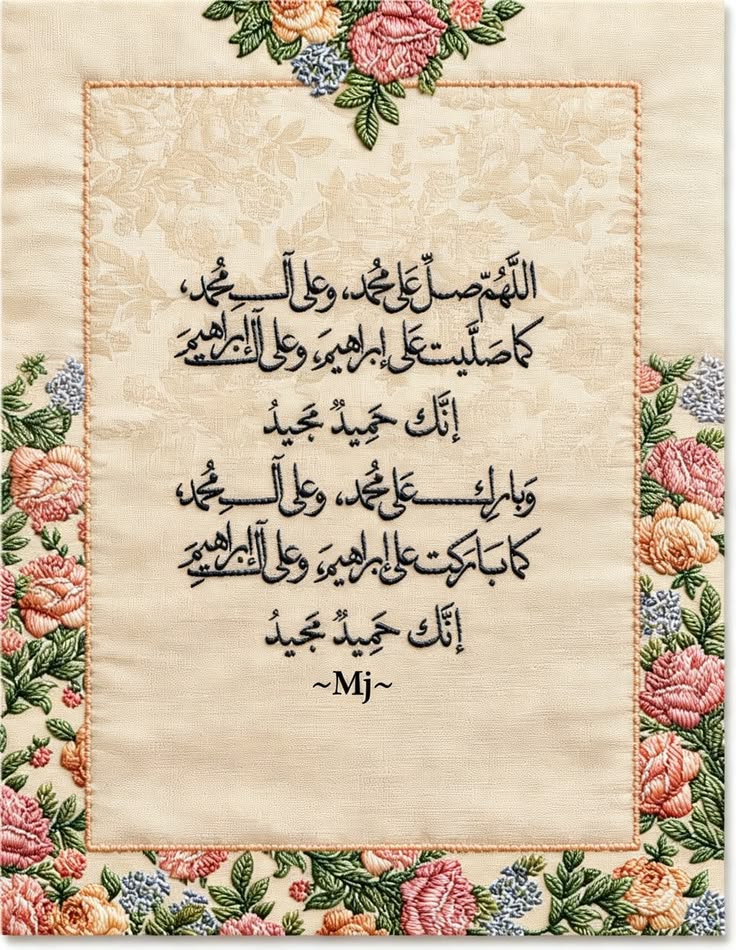 اللَّهُمَّ صلِّ عَلى مُحمد، وعلى آلِ مُحمد،
كما صَلَّيت عَلى إبراهيمَ، وعلى آلِ إبراهيمَ
إنَّك حَمِيدٌ مَجيدُ
وَبارِك عَلى مُحمد، وعلى آلِ مُحمد،
كما بَارَكت على إبراهيمَ، وعلى آلِ إبراهيمَ
إنَّك حَمِيدٌ مَجيدُ
~Mj~